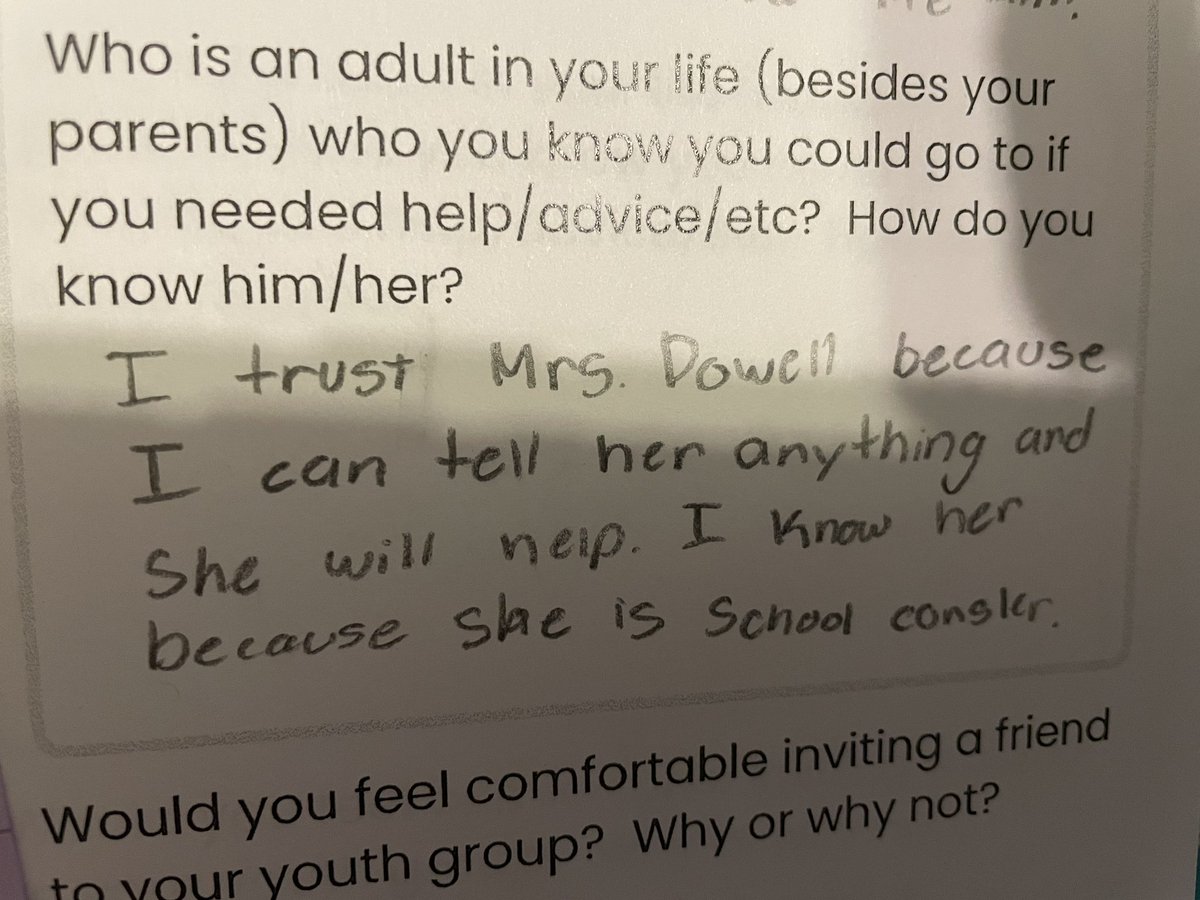 Who is an adult in your life (besides your
parents) who you know you could go to if
you needed help/advice/etc? How do you
know him/her?
I trust Mrs. Dowell because
I can tell her anything and
She will help. I know her
because she is School consler.
Would you feel comfortable inviting a friend
to your youth group? Why or why not?